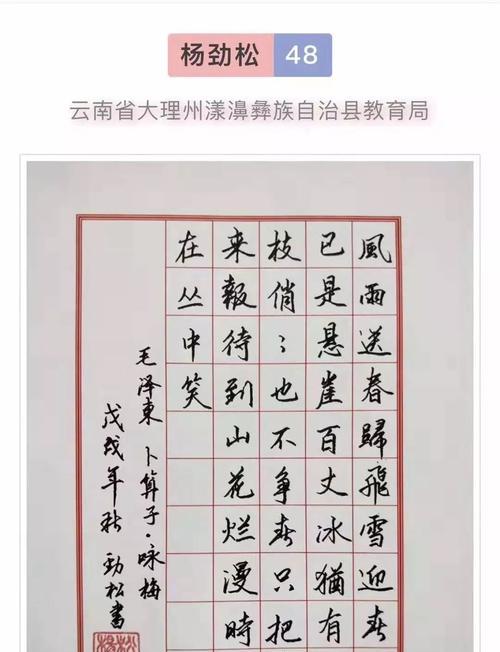 杨劲松 48
云南省大理州漾濞彝族自治县教育局
風雨送春歸飛雪迎春
已是悬崖百丈冰猶有
枝俏〻也不争春只把
来報待到山花烂漫時
在丛中笑
毛澤東 卜算子·咏梅
戊戌年秋 劲松書